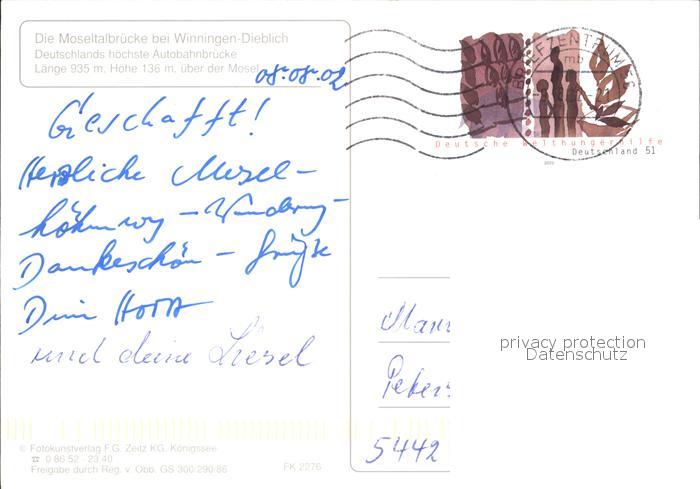 Die Moseltalbrücke bei Winningen-Dieblich
Deutschlands höchste Autobahnbrücke
Länge 935 m, Höhe 136 m, über der Mosel
08.08.02
Geschafft!
Herzliche Mosel-
höhenweg-Wanderung-
Dankeschön-Grüße
Dein Horst
und deine Liesel
© Fotokunstverlag F.G. Zeitz KG. Königssee
☎ 0 86 52 - 23 40
Freigabe durch Reg. v. Obb. GS 300/290/86
FK 2276
BRIEFZENTRUM 56
mb
Deutsche Welthungerhilfe
Deutschland 51
2002
Mann
Peters
5442
privacy protection
Datenschutz